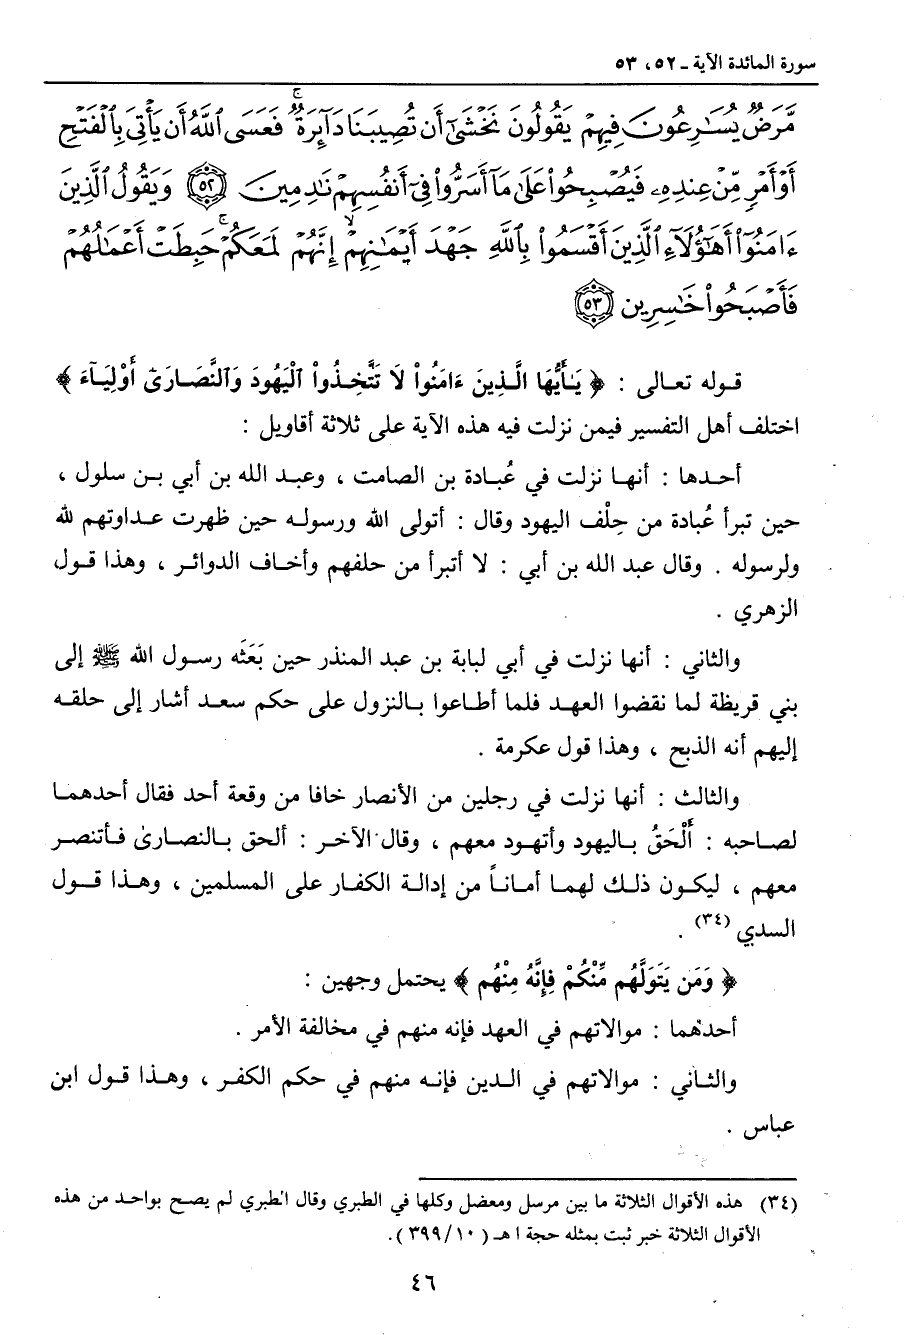 سورة المائدة الآية ـ ٥٢، ٥٣
مَّرَضٌ يُسَٰرِعُونَ فِيهِمْ يَقُولُونَ نَخْشَىٰٓ أَن تُصِيبَنَا دَآئِرَةٌۚ فَعَسَى ٱللَّهُ أَن يَأْتِىَ بِٱلْفَتْحِ
أَوْ أَمْرٍ مِّنْ عِندِهِۦ فَيُصْبِحُوا۟ عَلَىٰ مَآ أَسَرُّوا۟ فِىٓ أَنفُسِهِمْ نَٰدِمِينَ ٥٢ وَيَقُولُ ٱلَّذِينَ
ءَامَنُوٓا۟ أَهَٰٓؤُلَآءِ ٱلَّذِينَ أَقْسَمُوا۟ بِٱللَّهِ جَهْدَ أَيْمَٰنِهِمْۙ إِنَّهُمْ لَمَعَكُمْۚ حَبِطَتْ أَعْمَٰلُهُمْ
فَأَصْبَحُوا۟ خَٰسِرِينَ ٥٣
قوله تعالى : ﴿ يَٰٓأَيُّهَا الَّذِينَ ءَامَنُواْ لَا تَتَّخِذُواْ الْيَهُودَ وَالنَّصَارَىٰٓ أَوْلِيَآءَ ﴾
اختلف أهل التفسير فيمن نزلت فيه هذه الآية على ثلاثة أقاويل :
أحدها : أنها نزلت في عُبادة بن الصامت ، وعبد الله بن أبي بن سلول ،
حين تبرأ عُبادة من حِلْف اليهود وقال : أتولى الله ورسوله حين ظهرت عداوتهم لله
ولرسوله . وقال عبد الله بن أبي : لا أتبرأ من حلفهم وأخاف الدوائر ، وهذا قول
الزهري .
والثاني : أنها نزلت في أبي لبابة بن عبد المنذر حين بَعَثَه رسول الله ﷺ إلى
بني قريظة لما نقضوا العهد فلما أطاعوا بالنزول على حكم سعد أشار إلى حلقه
إليهم أنه الذبح ، وهذا قول عكرمة .
والثالث : أنها نزلت في رجلين من الأنصار خافا من وقعة أحد فقال أحدهما
لصاحبه : أَلْحَقُ باليهود وأتهود معهم ، وقال الآخر : ألحق بالنصارىٰ فأتنصر
معهم ، ليكون ذلك لهما أماناً من إدالة الكفار على المسلمين ، وهذا قول
السدي (٣٤) .
﴿ وَمَن يَتَوَلَّهُم مِّنْكُمْ فَإِنَّهُ مِنْهُم ﴾ يحتمل وجهين :
أحدهما : موالاتهم في العهد فإنه منهم في مخالفة الأمر .
والثاني : موالاتهم في الدين فإنه منهم في حكم الكفر ، وهذا قول ابن
عباس .
(٣٤) هذه الأقوال الثلاثة ما بين مرسل ومعضل وكلها في الطبري وقال الطبري لم يصح بواحد من هذه
الأقوال الثلاثة خبر ثبت بمثله حجة ا هـ (١٠/٣٩٩).
٤٦